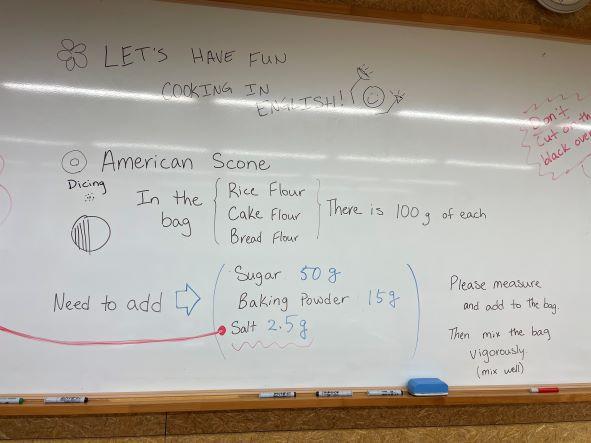 LET'S HAVE FUN
COOKING IN
ENGLISH!
Don't
cut on th
black over
American Scone
Dicing
In the
bag
Rice Flour
Cake Flour
Bread Flour
There is 100g of each
Need to add
Sugar 50g
Baking Powder 15g
Salt 2.5g
Please measure
and add to the bag.
Then mix the bag
vigorously.
(mix well)